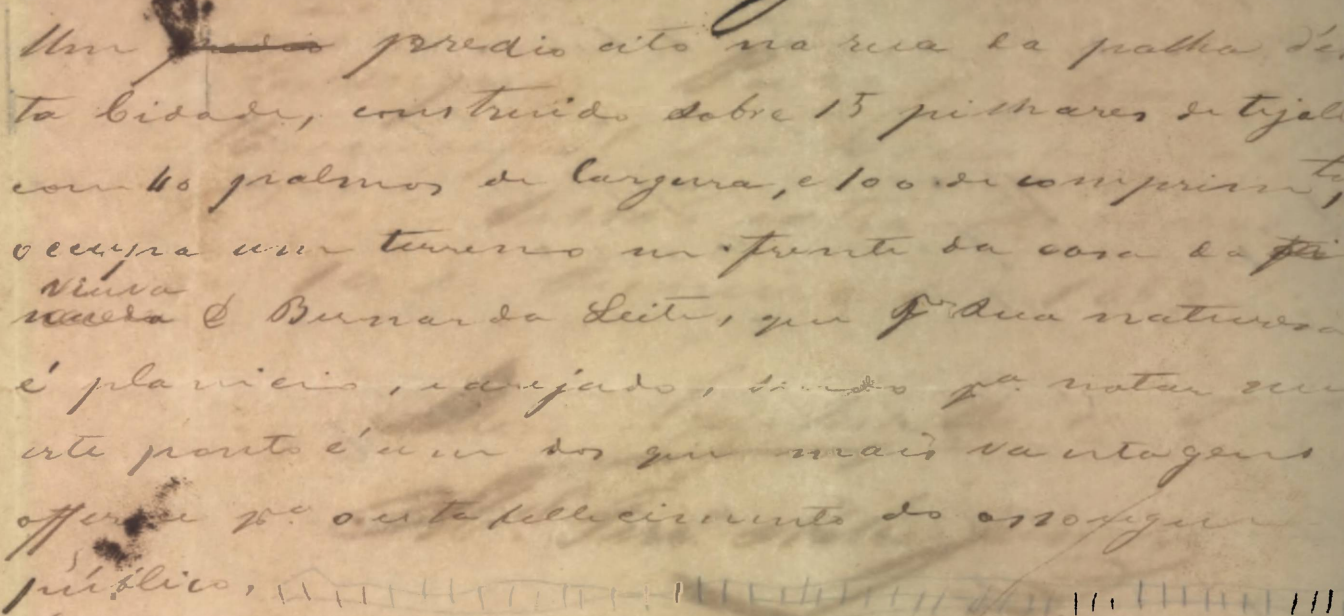 Um predio cito na rua da palha dés
ta Cidade, construido sobre 15 pilhares de tijol
com 40 palmos de largura, e 100 de comprimto,
occupa um terreno na frente da casa da
viuva D Bernarda Leite, que pr sua naturesa
é planicio, e arejado, sendo pa notar
este ponto é um dos que mais vantagens
offerece pa o estabellecimento do assougue
público.